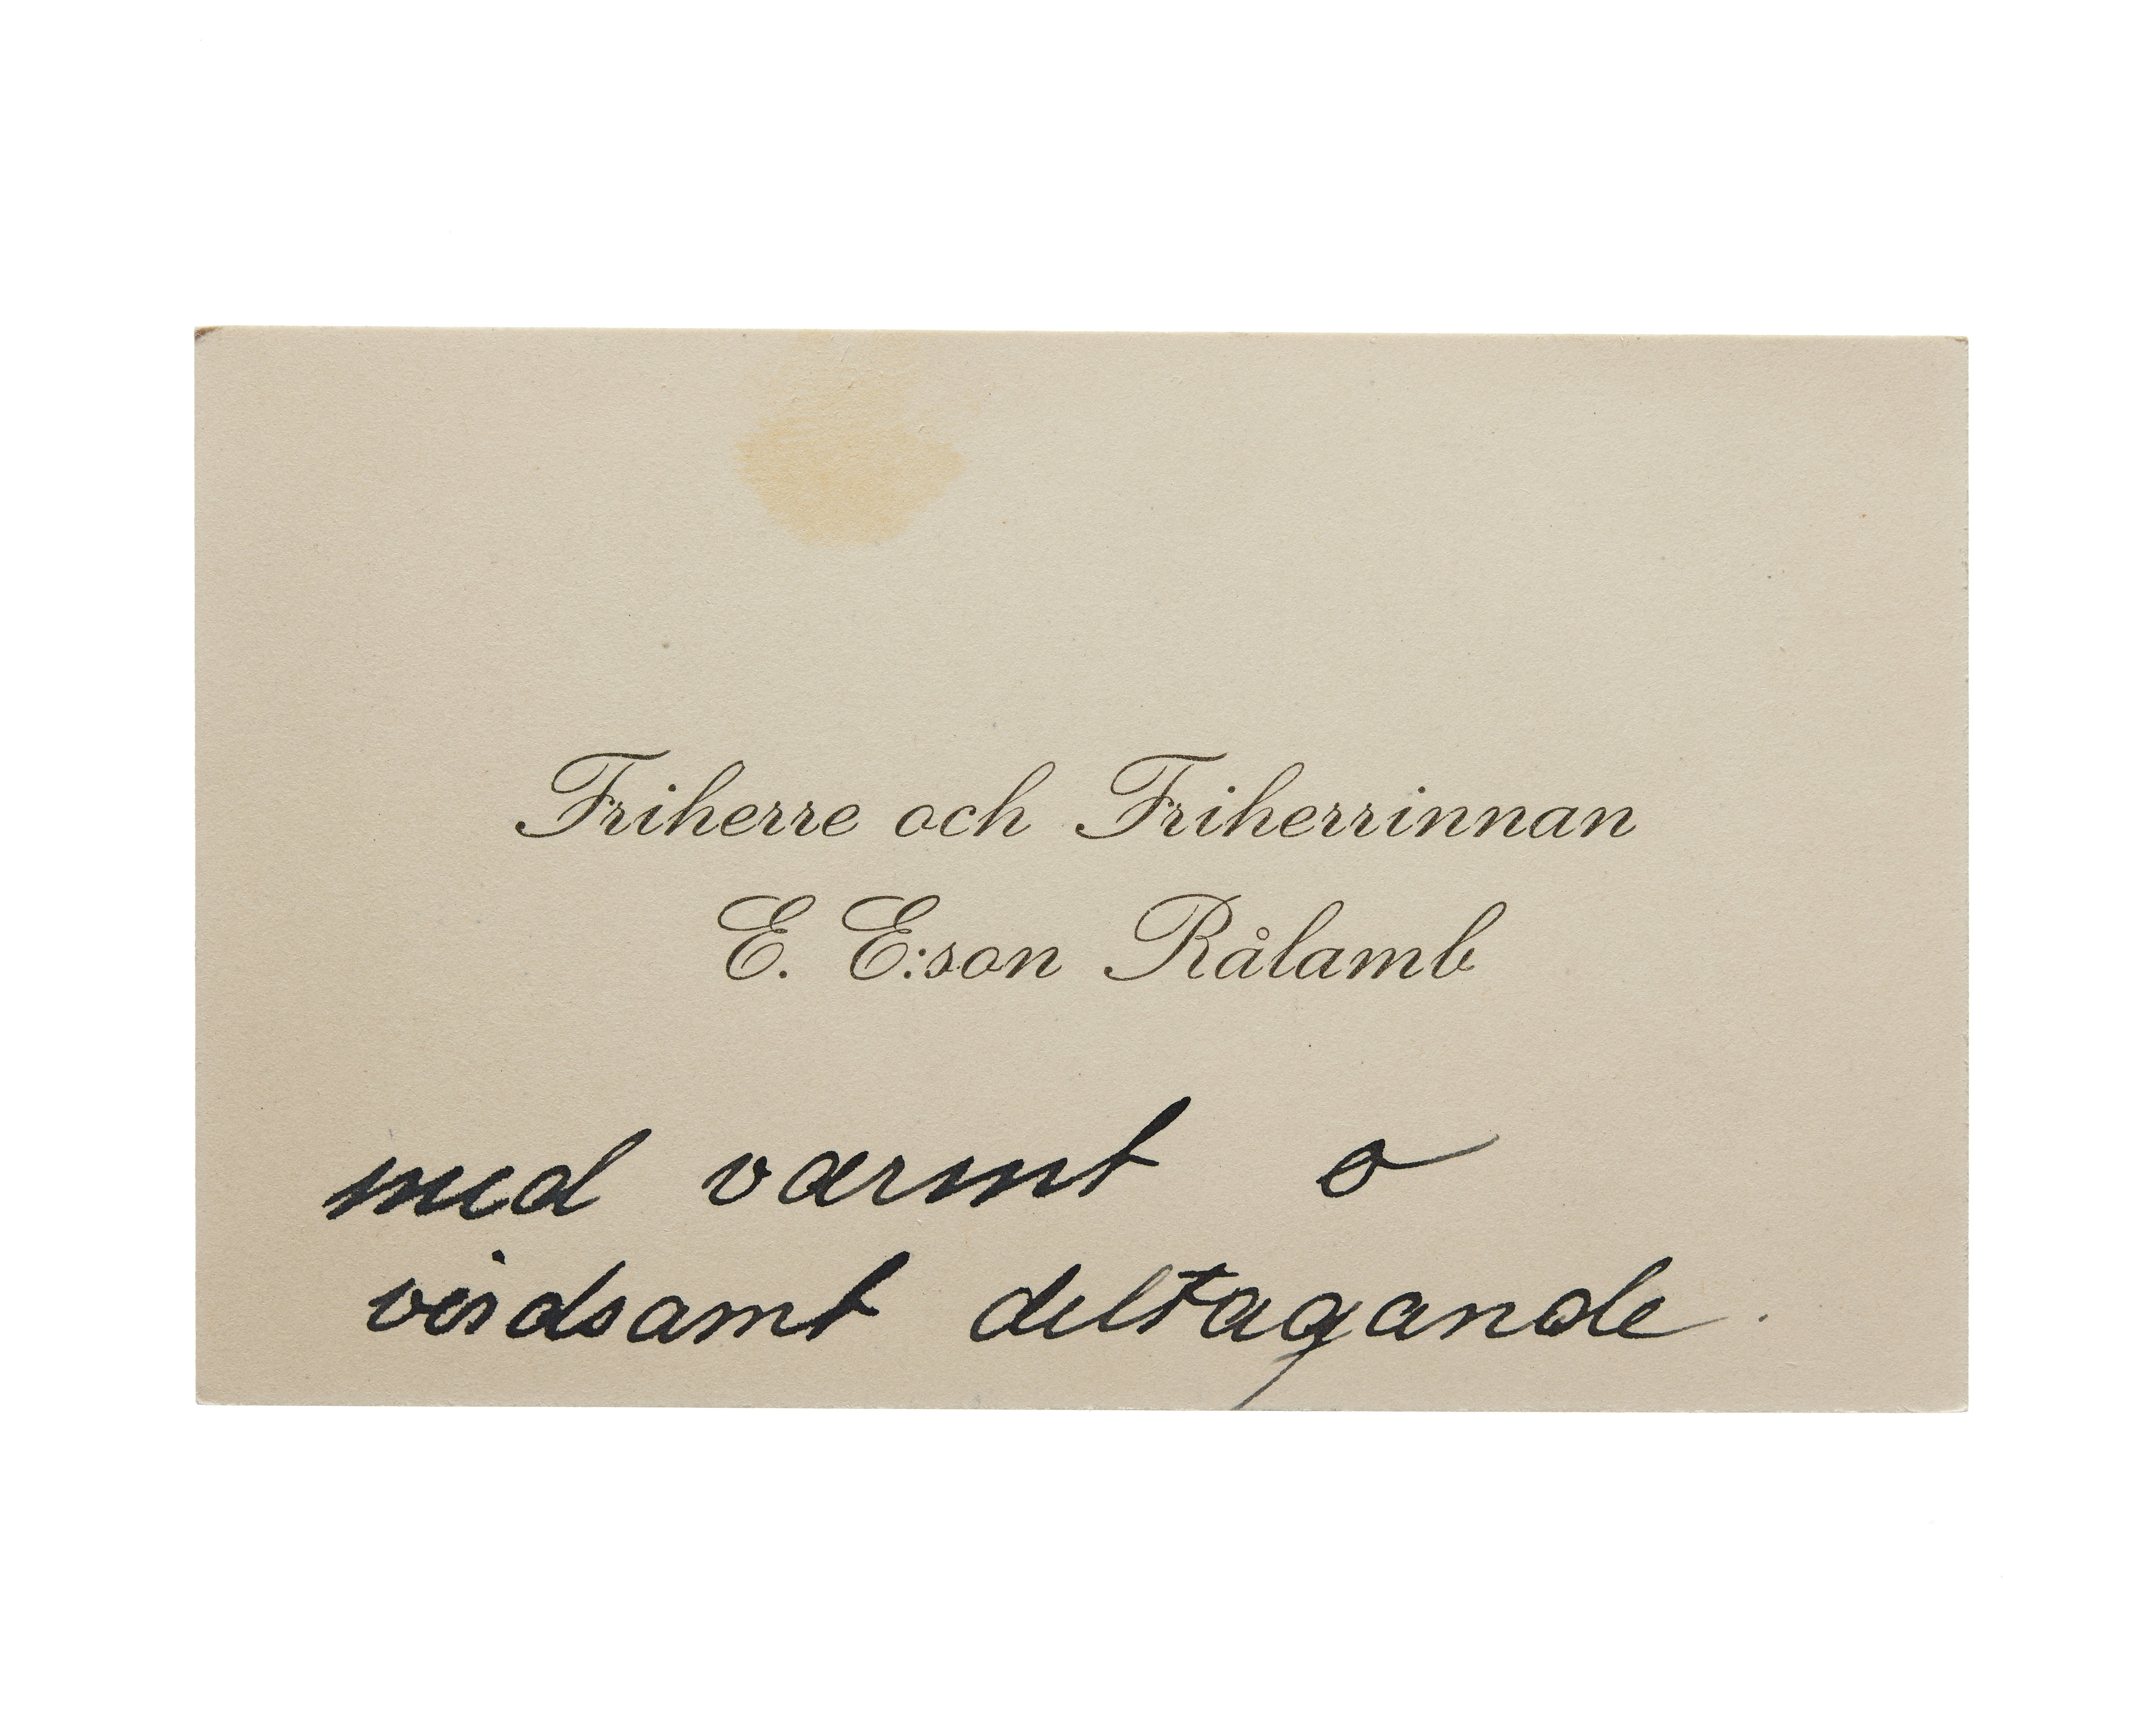 Friherre och Friherrinnan
E. E:son Rålamb
med varmt o
vördsamt deltagande.